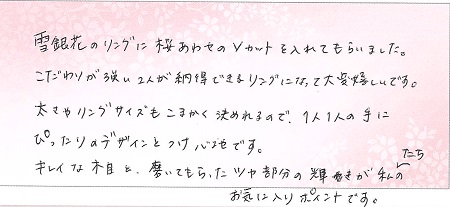 雪銀花のリングに桜あわせのVカットを入れてもらいました。
こだわりが強い2人が納得できるリングになって大変嬉しいです。
太さやリングサイズもこまかく決めれるので、1人1人の手に
ぴったりのデザインとつけ心地です。
キレイな木目と、磨いてもらったツヤ部分の輝きが私たちの
お気に入りポイントです。